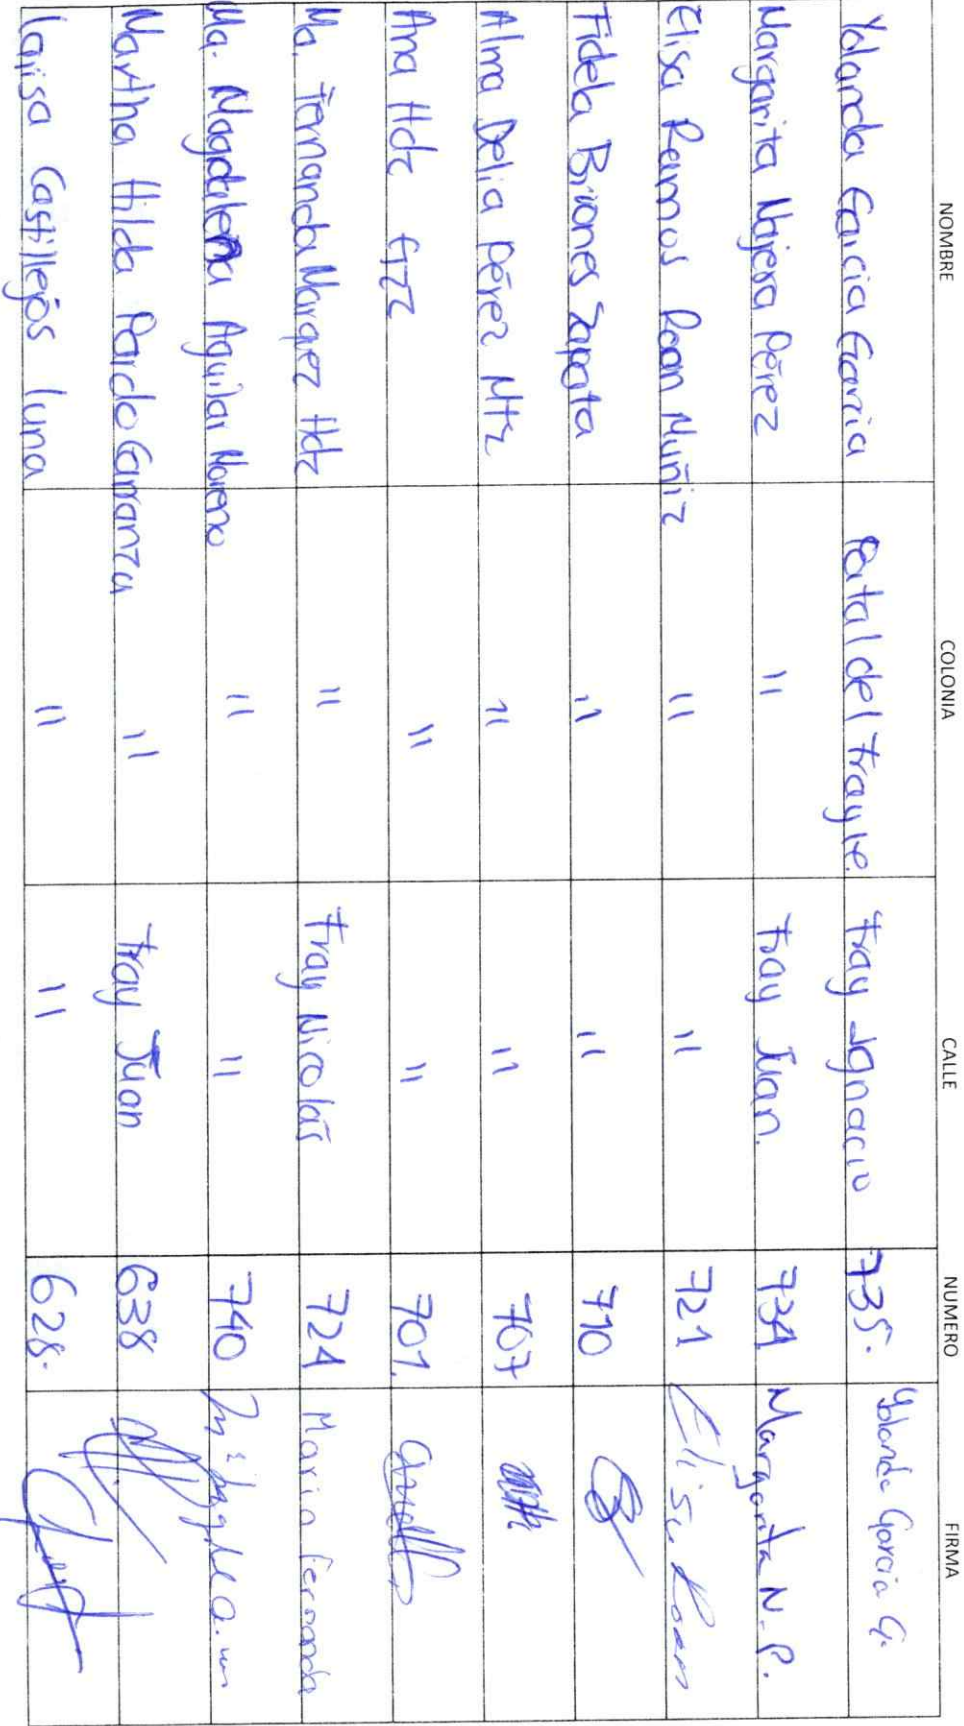 NOMBRE COLONIA CALLE NUMERO FIRMA
Yolanda Garcia Garcia Portal del Frayle. Fray Ignacio 735. Yolanda Garcia G.
Margarita Najera Pérez " Fray Juan. 734 Margarita N. P.
Elisa Ramos Roan Muñiz " " 721 Elisa Roan
Fidela Briones Zapata " " 710
Alma Delia Pérez Mtz " " 707
Ana Hdz Gzz " " 701.
Ma. Fernanda Marquez Hdz " Fray Nicolás 724 Maria Fernanda
Ma. Magdalena Aguilar Moreno " " 740
Martha Hilda Pardo Carranza " Fray Juan 638
Larisa Castillejos Luna " " 628.